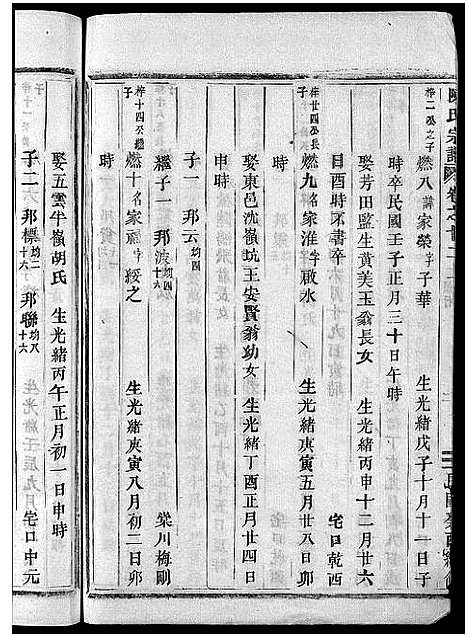 陳氏宗譜 卷之廿二
梓二公之子
燃八 諱家榮字子華 生光緒戊子十月十一日子
時卒民國壬子正月三十日午時
娶芳田監生黃美玉翁長女 生光緒丙申十二月廿六
日酉時不書卒 宅口乾西
梓廿四公長子
燃九 名家淮字啟水 生光緒庚寅五月廿八日卯
時
娶東邑沈嶺坑王安賢翁幼女 生光緒丁酉正月廿四日
申時
子一 邦云均四
梓十四公繼子
燃十 名家 字綏之 生光緒庚寅八月初二日卯
時
繼子一 邦波均四十六 棠川梅剛
娶五雲牛嶺胡氏 生光緒丙午正月初一日申時
子二 邦標均二十六 邦聯均八十六 宅口中元